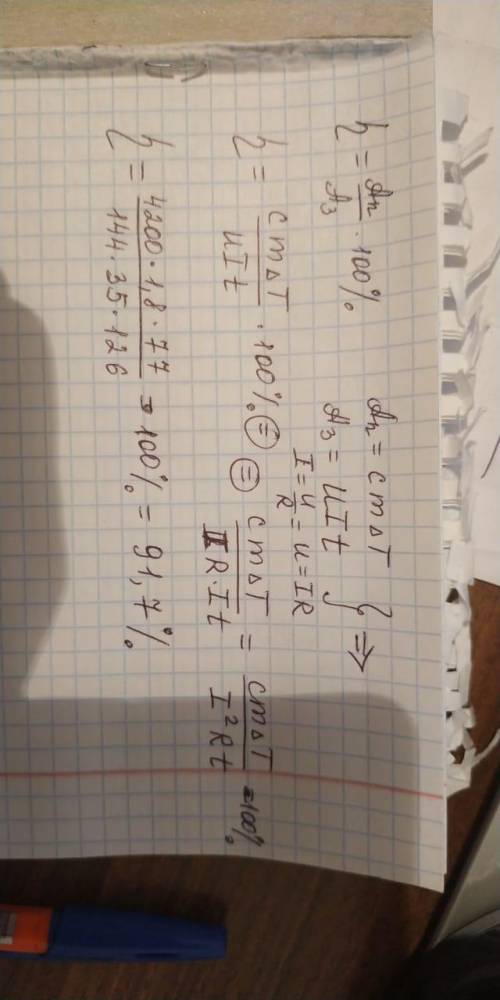 η = Aп/Aз · 100%
Aп = cmΔT
Aз = UIt } ⇒
I = U/R = U = IR
η = cmΔT/UIt · 100% ⊜
⊜ cmΔT/IR·It = cmΔT/I²Rt = 100%
η = 4200·1,8·77/144·35·126 = 100% = 91,7%